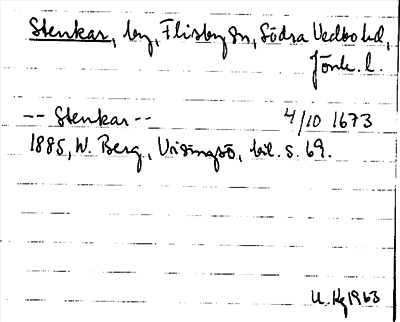 Stenkar, by, Flisby sn, Södra Vedbo hd,
Jönk. l.
-- Stenkar -- 4/10 1673
1885, W. Berg, Visingsö, bil. s. 69.
U. Hg 1963